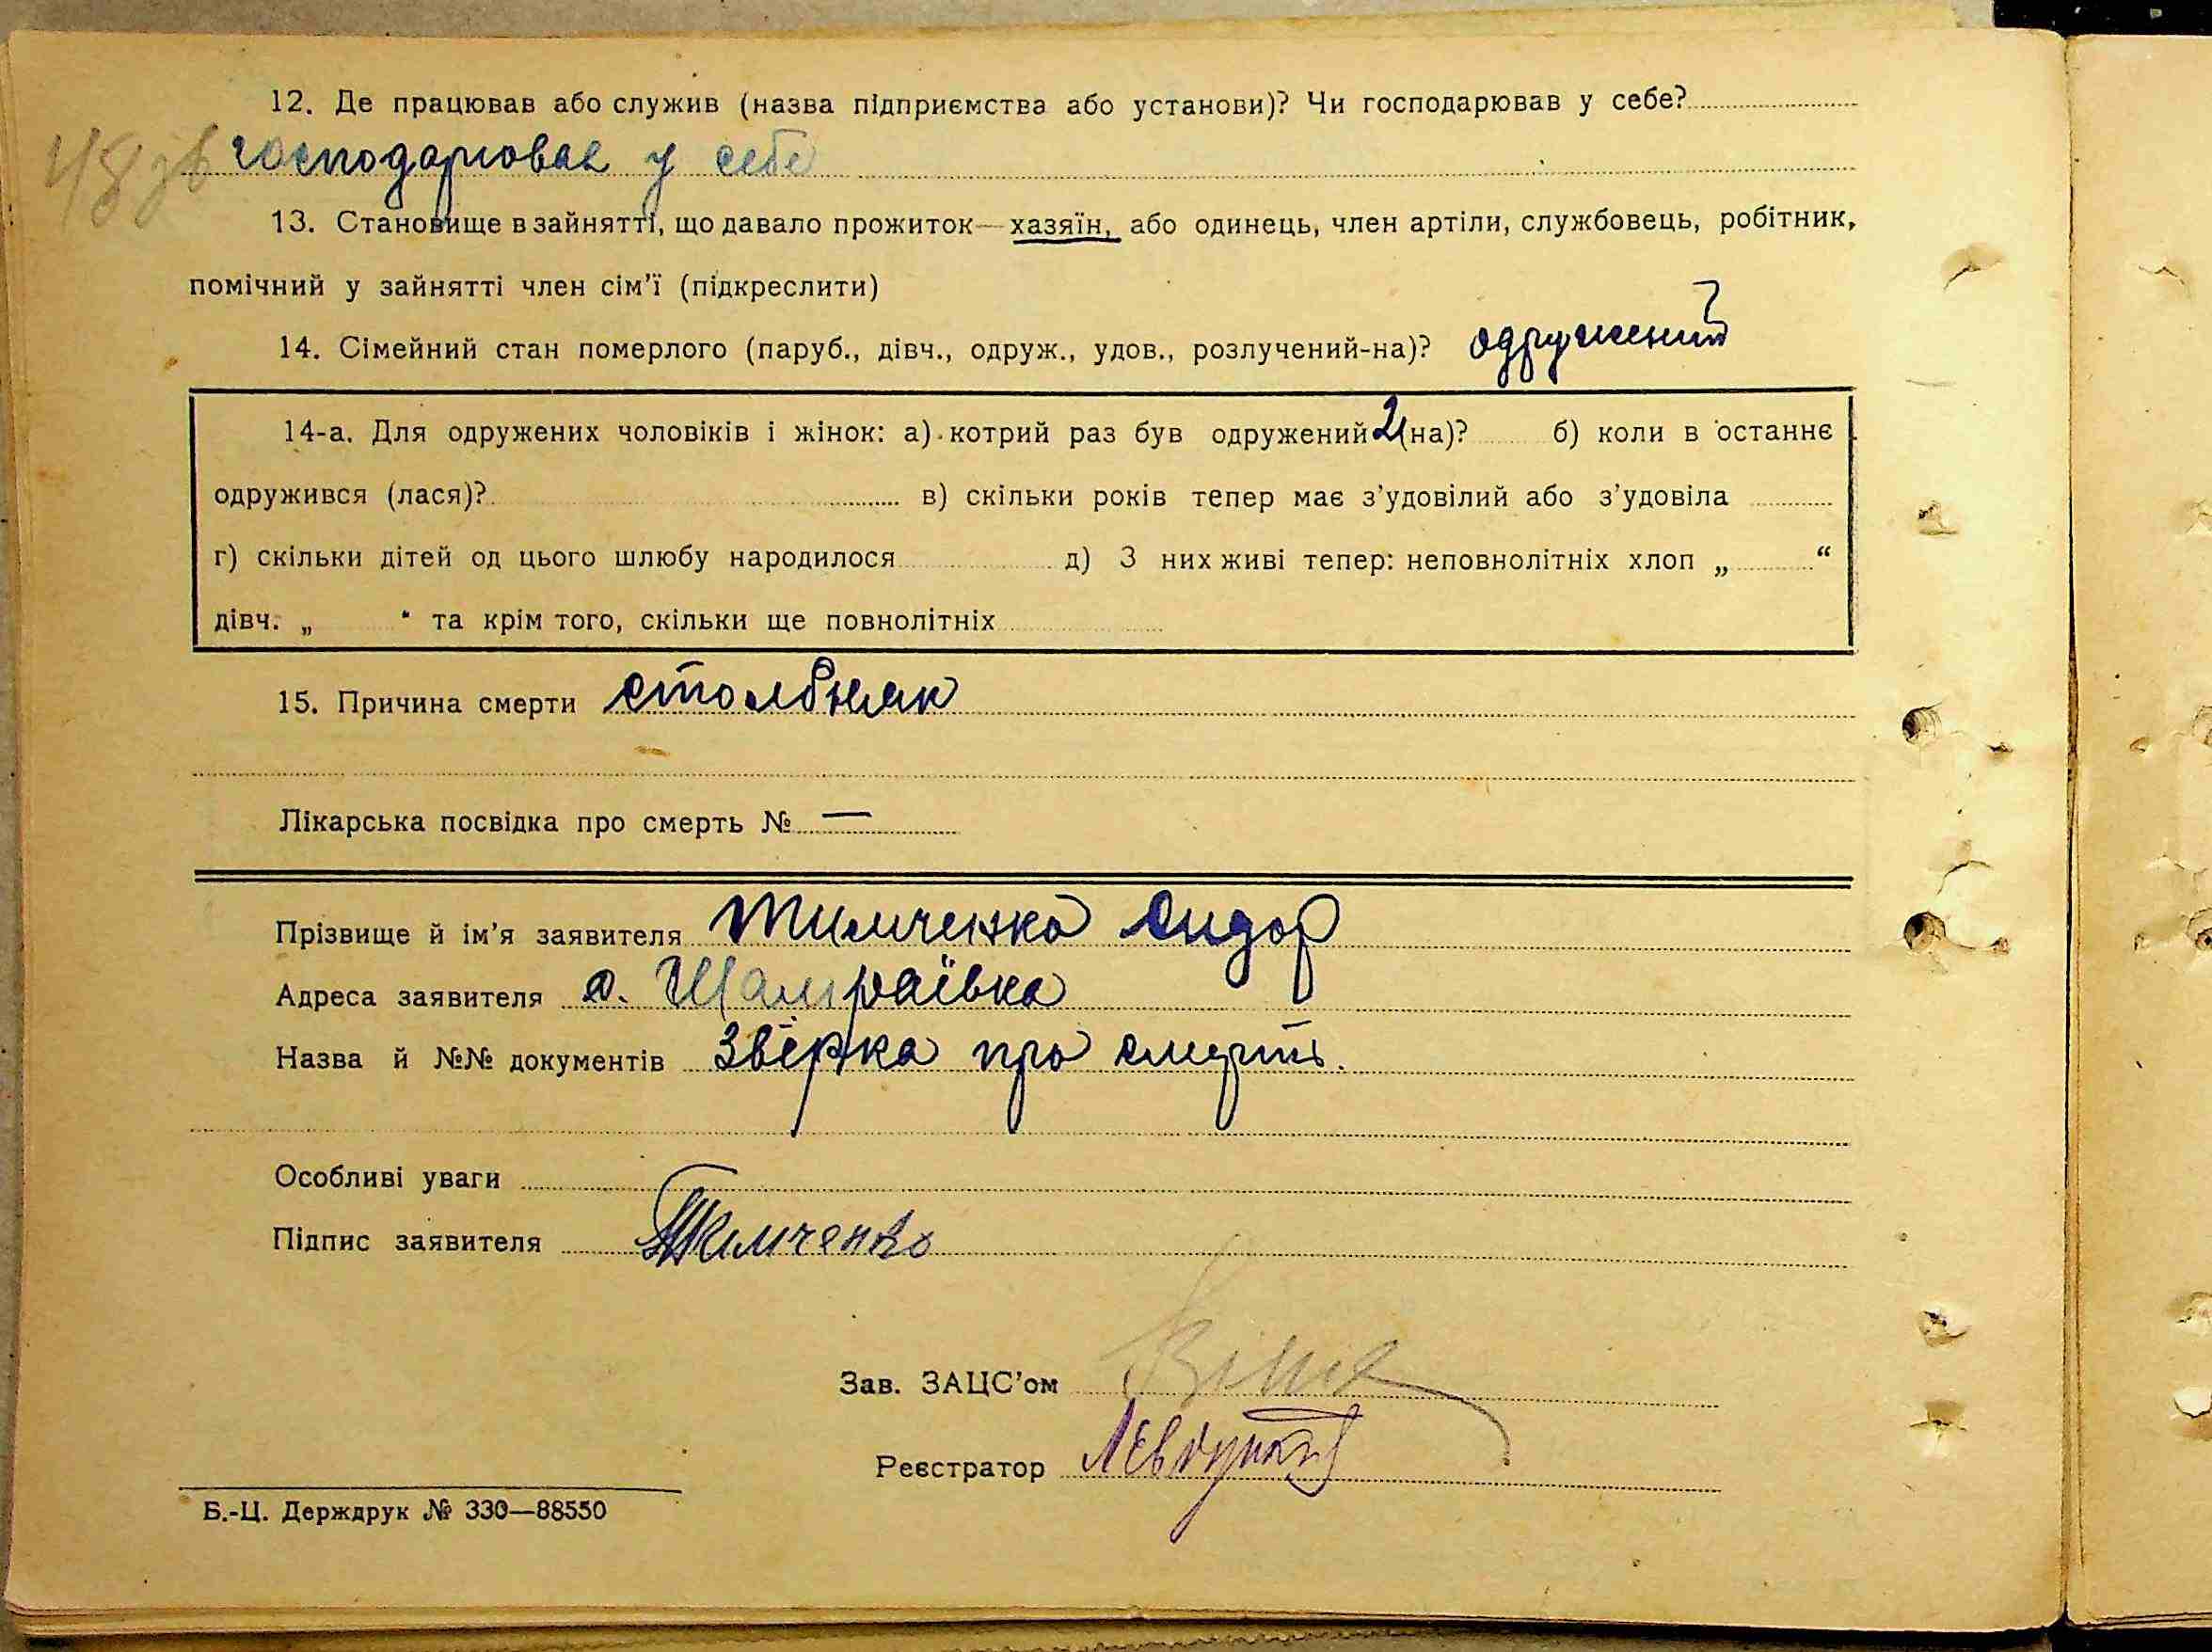 12. Де працював або служив (назва підприємства або установи)? Чи господарював у себе?
48 зв господарював у себе
13. Становище в зайнятті, що давало прожиток — хазяїн, або одинець, член артіли, службовець, робітник,
помічний у зайнятті член сім'ї (підкреслити)
14. Сімейний стан померлого (паруб., дівч., одруж., удов., розлучений-на)? одружений
14-а. Для одружених чоловіків і жінок: а) котрий раз був одружений 2 (на)? б) коли в останнє
одружився (лася)? в) скільки років тепер має з'удовілий або з'удовіла
г) скільки дітей од цього шлюбу народилося д) З них живі тепер: неповнолітніх хлоп „ “
дівч. „ “ та крім того, скільки ще повнолітніх
15. Причина смерти столбняк
Лікарська посвідка про смерть № —
Прізвище й ім'я заявителя Тимченко Сидор
Адреса заявителя с. Шамраївка
Назва й №№ документів Звірка про смерть.
Особливі уваги
Підпис заявителя Тимченко
Зав. ЗАЦС'ом
Реєстратор
Б.-Ц. Держдрук № 330—88550